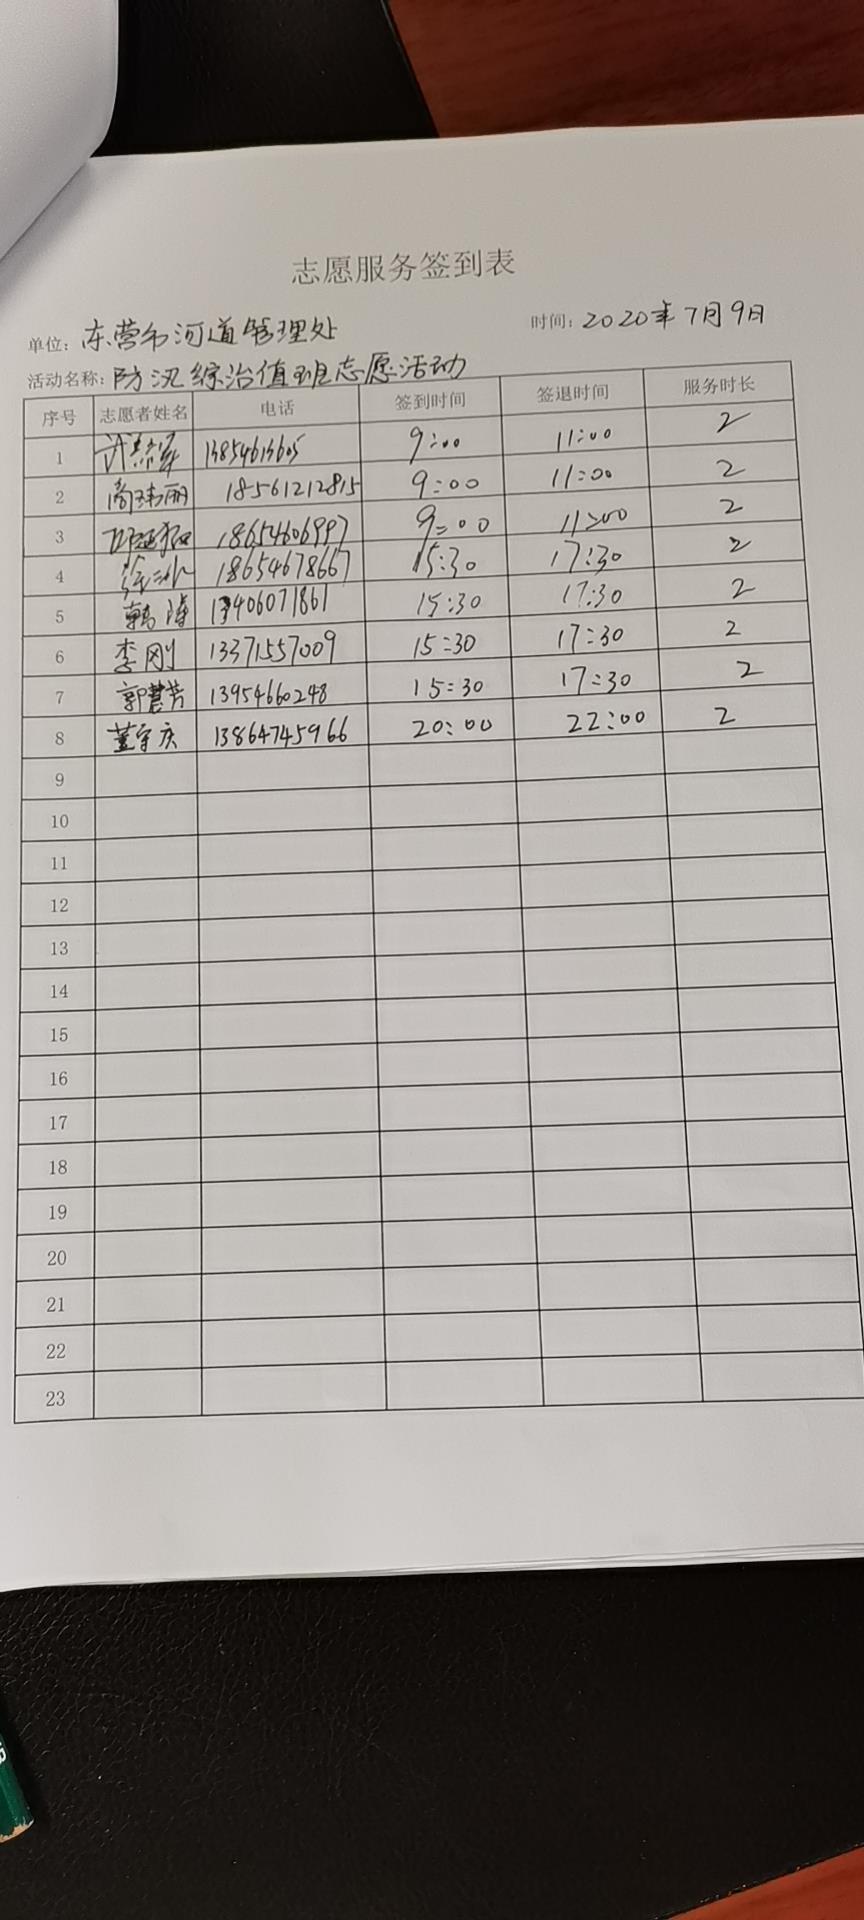 志愿服务签到表
单位：东营市河道管理处 时间：2020年7月9日
活动名称：防汛综治值班志愿活动
序号 志愿者姓名 电话 签到时间 签退时间 服务时长
1 13854613605 9:00 11:00 2
2 尚玮丽 18561212815 9:00 11:00 2
3 18654606997 9:00 11:00 2
4 18654678667 15:30 17:30 2
5 韩涛 13406071861 15:30 17:30 2
6 李刚 13371557009 15:30 17:30 2
7 郭慧芳 13954660248 15:30 17:30 2
8 董宇庆 13864745966 20:00 22:00 2
9
10
11
12
13
14
15
16
17
18
19
20
21
22
23